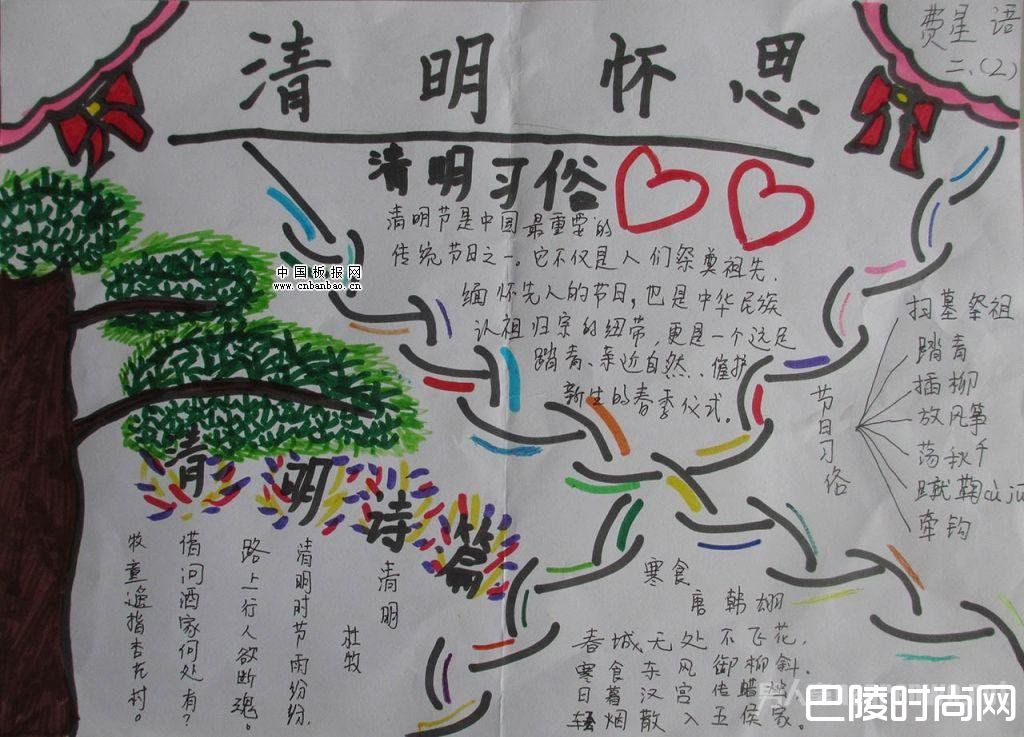 清明怀思
费星语
二、(2)
清明习俗
清明节是中国最重要的
传统节日之一。它不仅是人们祭奠祖先、
缅怀先人的节日,也是中华民族
认祖归宗的纽带,更是一个远足
踏青、亲近自然、催护
新生的春季仪式。
中国板报网
www.cnbanbao.cn
节日习俗
扫墓祭祖
踏青
插柳
放风筝
荡秋千
蹴鞠cù jū
牵钩
清明诗篇
清明
杜牧
清明时节雨纷纷,
路上行人欲断魂。
借问酒家何处有?
牧童遥指杏花村。
寒食
唐 韩翃
春城无处不飞花,
寒食东风御柳斜.
日暮汉宫传蜡烛
轻烟散入五侯家.
巴陵时尚网